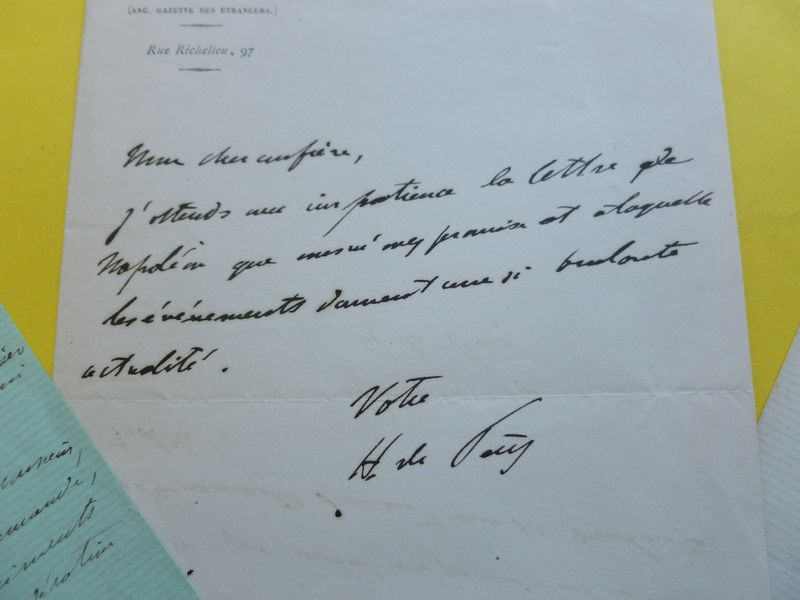 (ANC. GAZETTE DES ÉTRANGERS.)
Rue Richelieu, 97
Mon cher confrère,
J'attends avec impatience la lettre de
Napoléon que vous m'avez promise et à laquelle
les événements donnent une si brulante
actualité.
Votre
H. de Pène